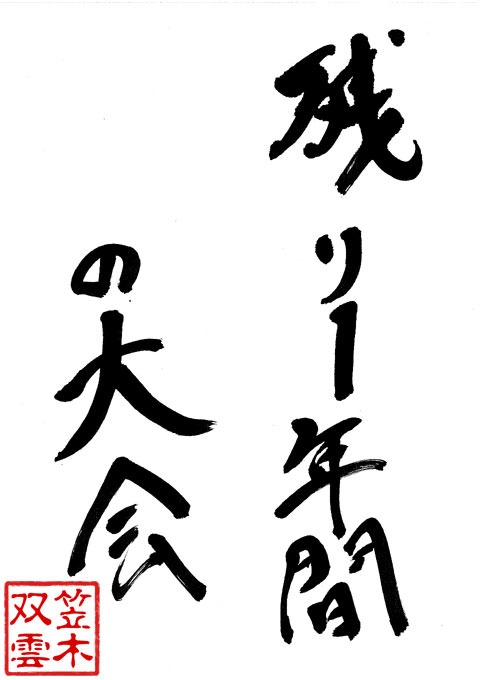 残り1年間
の大会
笠木
双雲